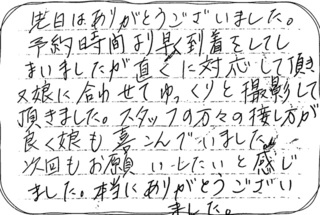 先日はありがとうございました。
予約時間より早く到着をしてし
まいましたが直ぐに対応して頂き
又娘に合わせてゆっくりと撮影して
頂きました。スタッフの方々の接し方が
良く娘も喜こんでいました。
次回もお願いしたいと感じ
ました。本当にありがとうござい
ました。